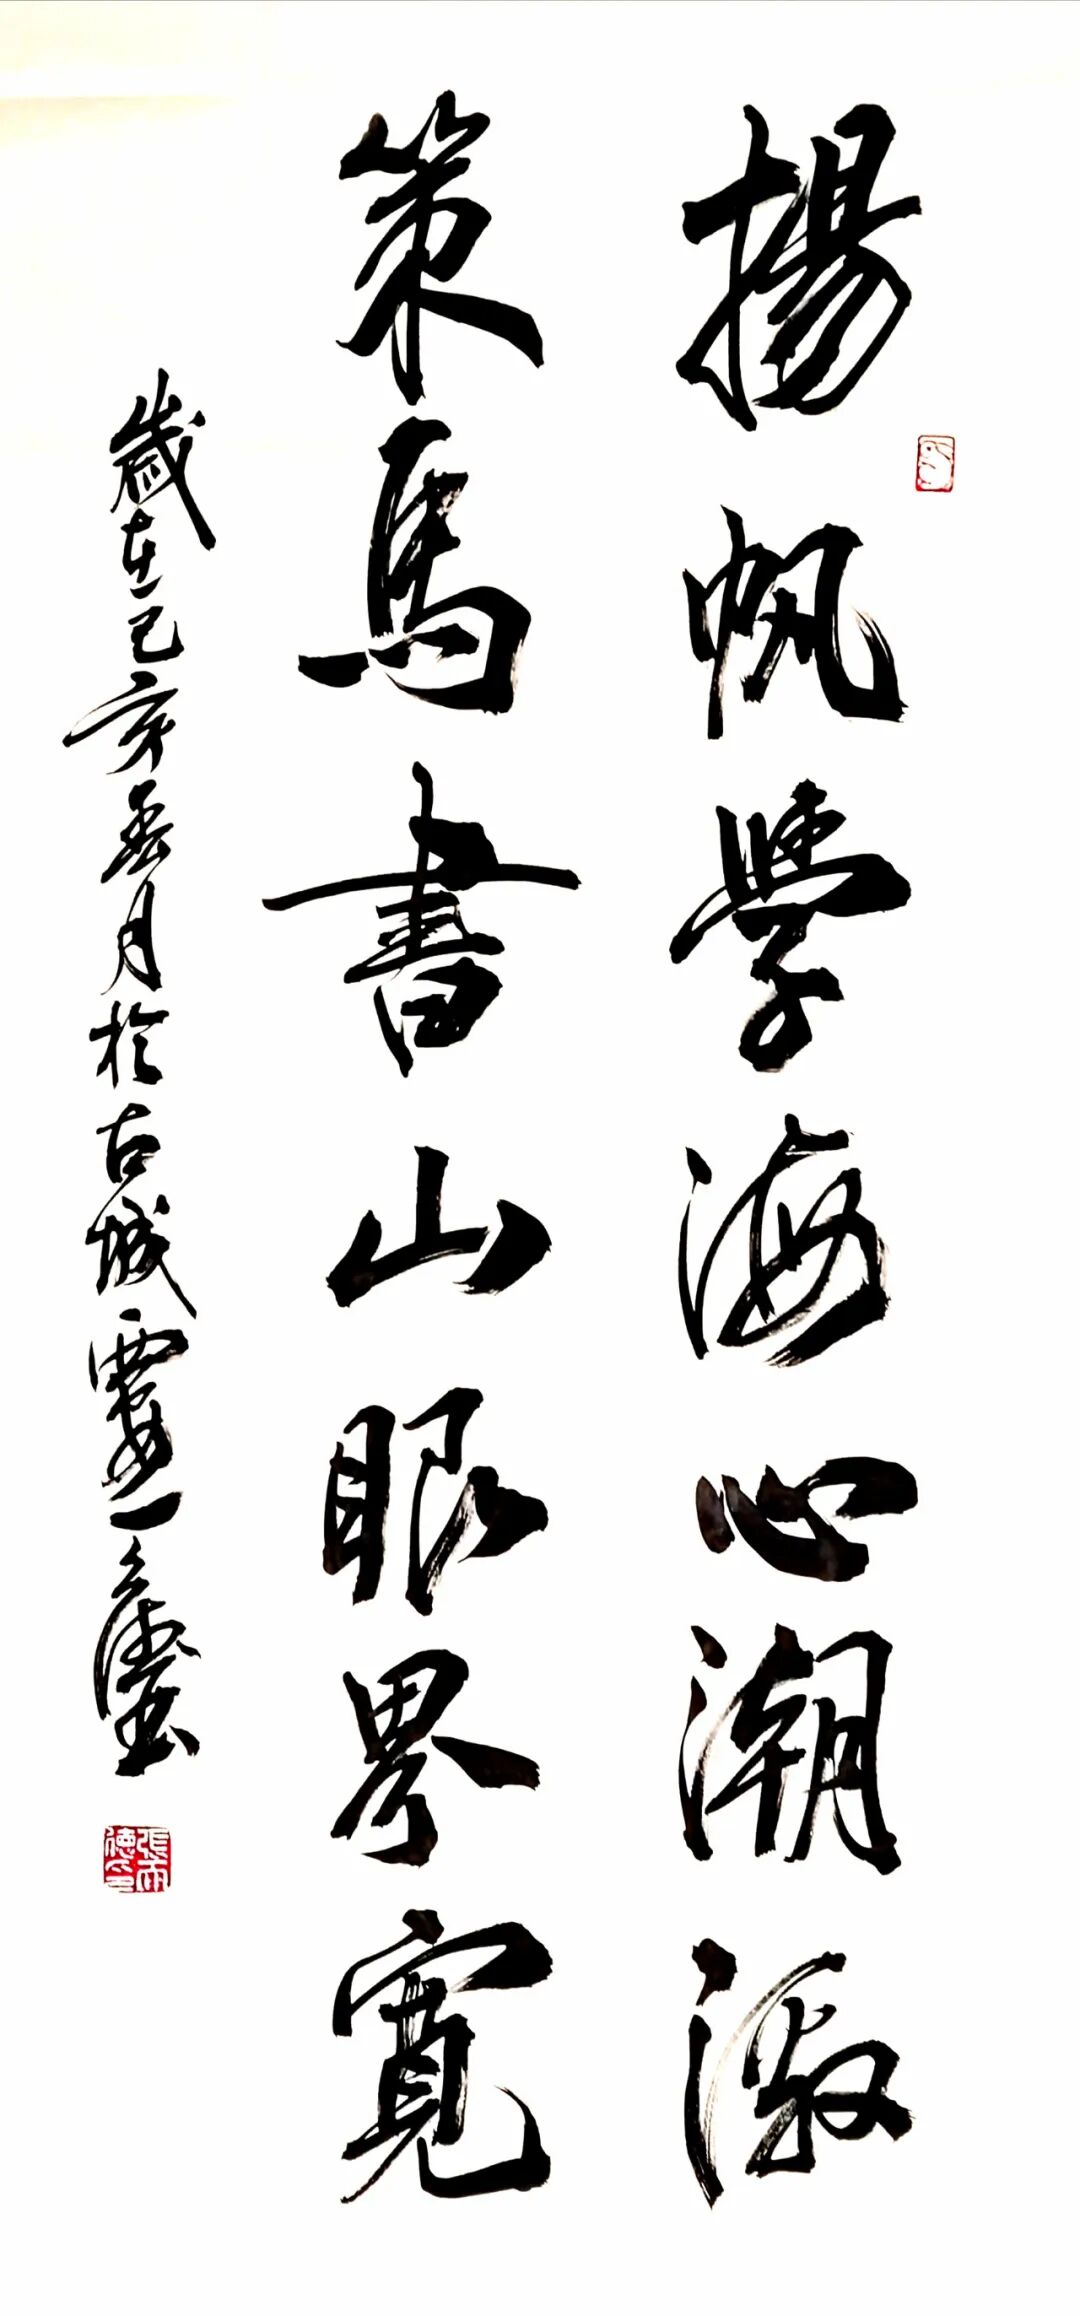 揚帆學海心潮激
策馬書山眼界寬
歲在己亥月於古城
張雨德印